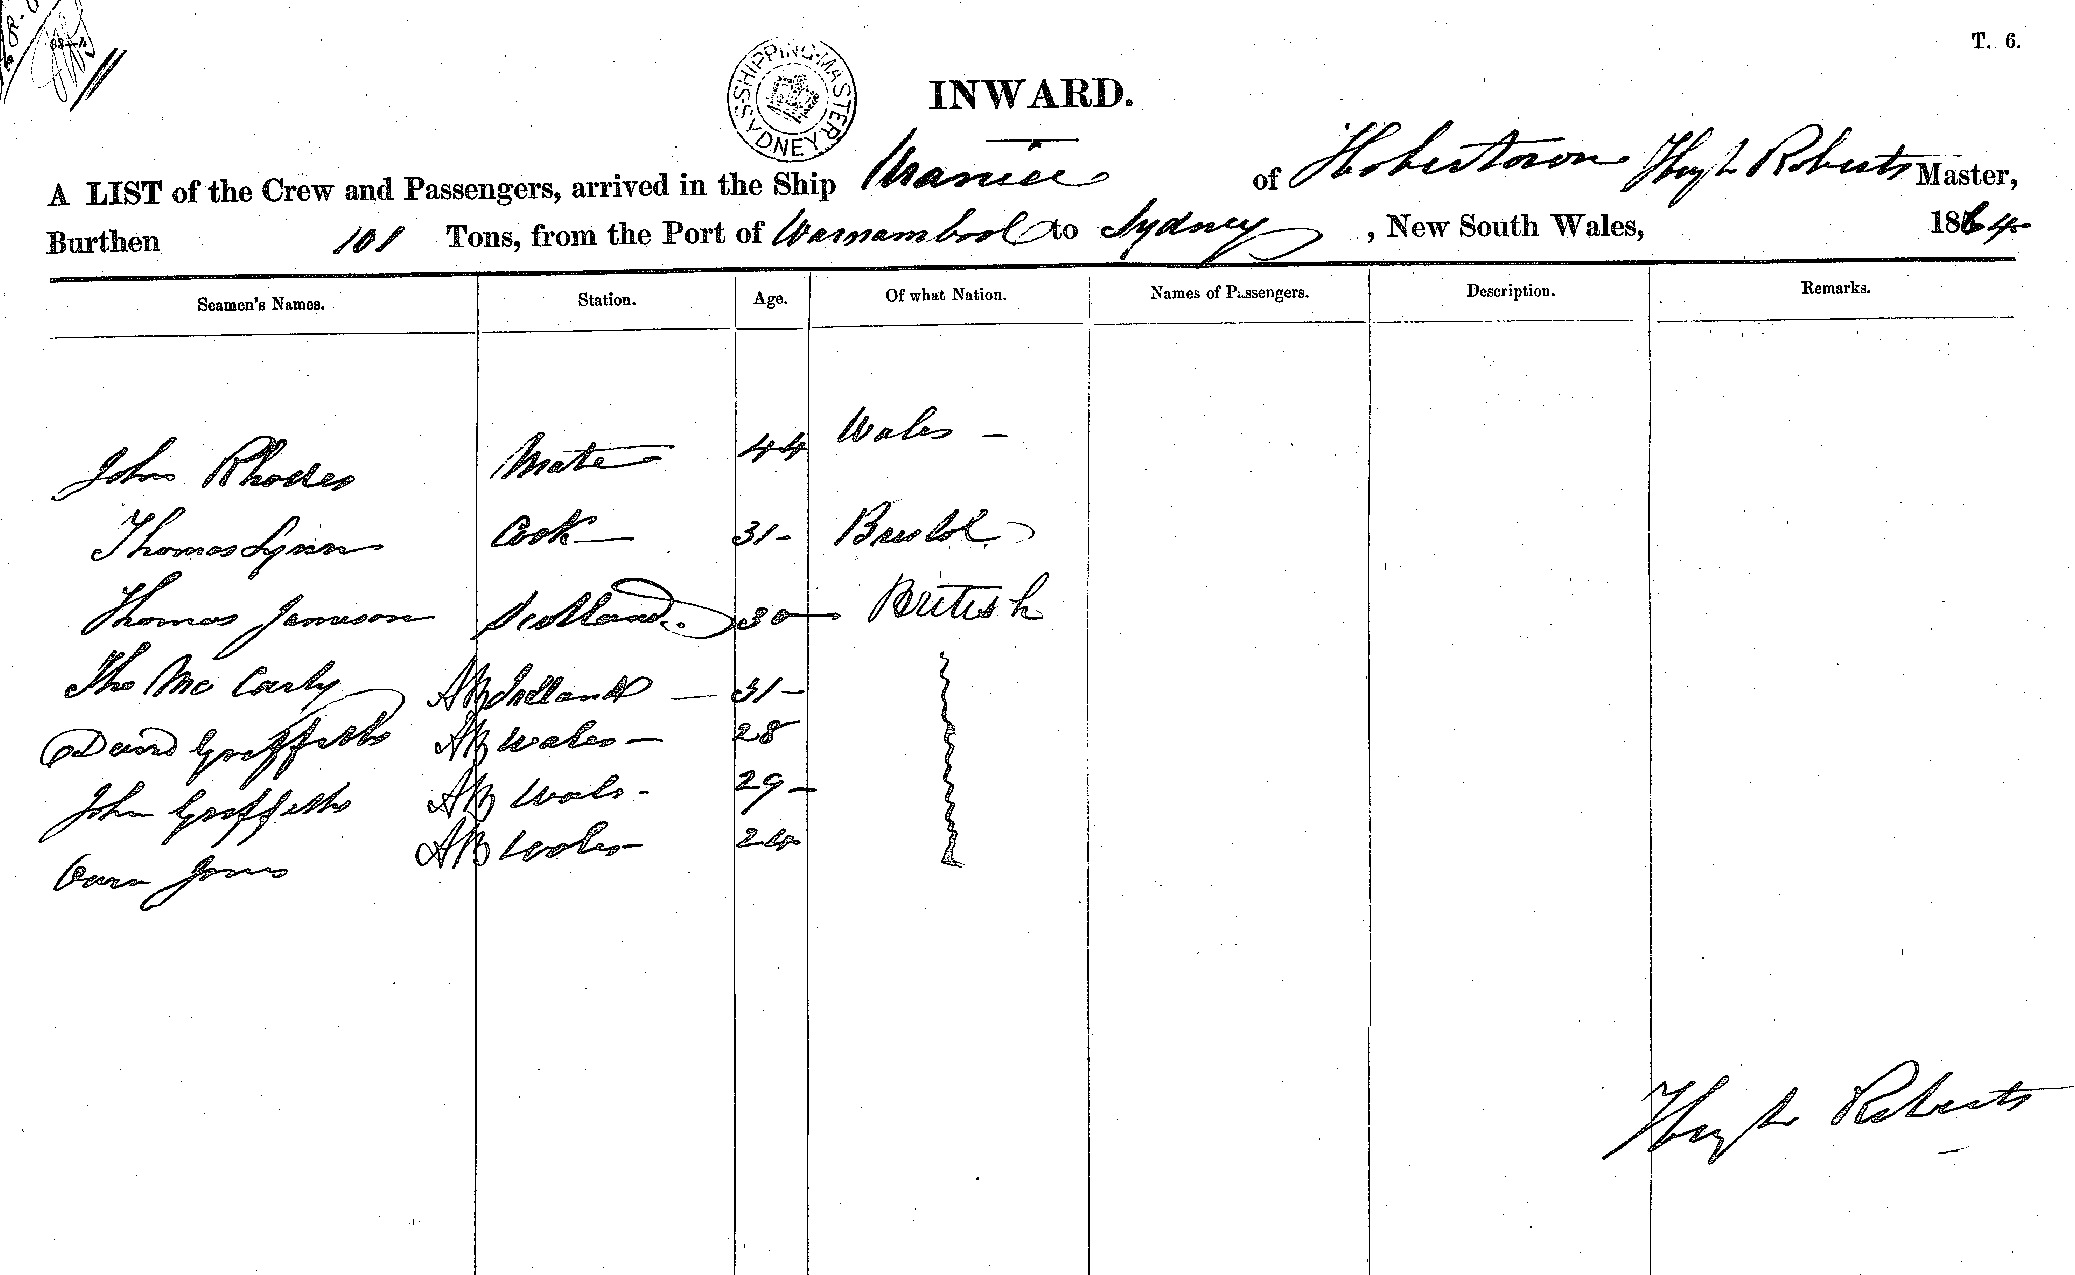 T. 6.
SHIPPING MASTER SYDNEY
INWARD.
A LIST of the Crew and Passengers, arrived in the Ship of Hobertown Hugh Roberts Master,
Burthen 101 Tons, from the Port of Warnambool to Sydney, New South Wales, 1864
Seamen's Names. Station. Age. Of what Nation. Names of Passengers. Description. Remarks.
John Rhodes Mate 44 Wales
Thomas Lynn Cook 31 Bristol
Thomas Jameson Scotland 30 British
Tho Mc Carty AB 31
David Griffeths AB Wales 28
John Griffeths AB Wales 29
Owen Jones AB Wales 24
Hugh Roberts